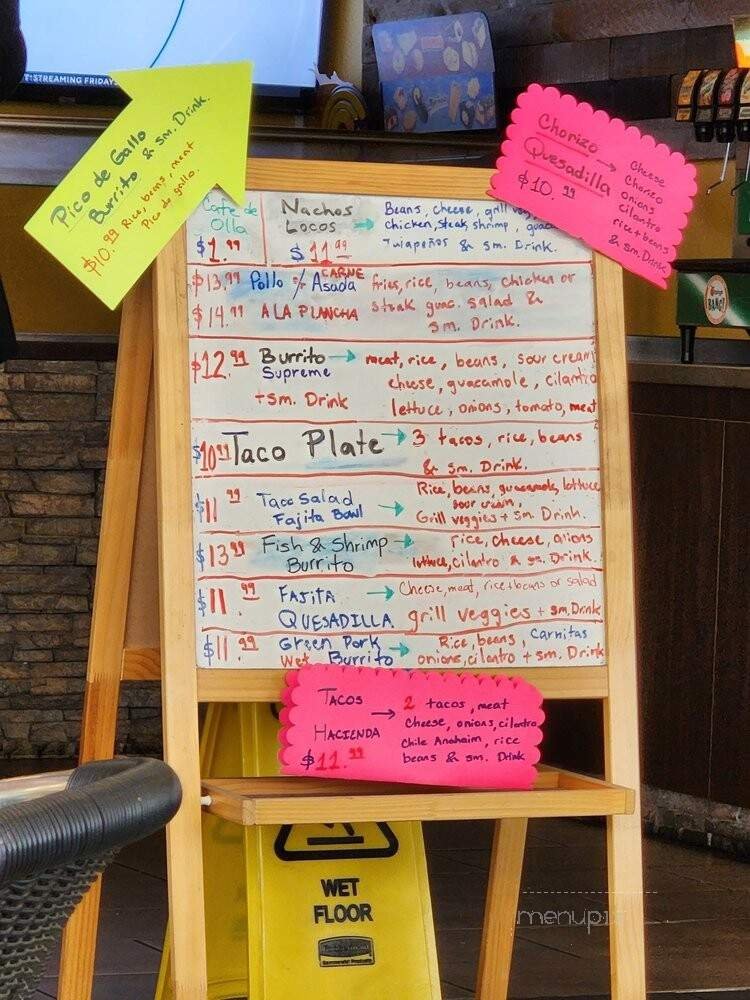 T: STREAMING FRIDAY
Pico de Gallo
Burrito & sm. Drink.
$10.99 Rice, beans, meat
Pico de gallo.
Chorizo
Quesadilla
$10.99
Cheese
Chorizo
onions
cilantro
rice + beans
& sm. Drink
Cafe de
Olla
$1.99
Nachos
Locos
$11.99
Beans, cheese, grill
chicken, steak, shrimp, guac
Jalapeños & sm. Drink.
$13.99 Pollo o/ Asada
CARNE
$14.99 A LA PLANCHA
fries, rice, beans, chicken or
steak guac. salad &
sm. Drink.
$12.99 Burrito
Supreme
+ sm. Drink
meat, rice, beans, sour cream
cheese, guacamole, cilantro
lettuce, onions, tomato, meat
$10.99 Taco Plate
3 tacos, rice, beans
& sm. Drink.
$11.99 Taco Salad
Fajita Bowl
Rice, beans, guacamole, lettuce
sour cream,
Grill veggies + sm. Drink.
$13.99 Fish & Shrimp
Burrito
rice, cheese, onions
lettuce, cilantro & sm. Drink.
$11.99 FAJITA
QUESADILLA
Cheese, meat, rice + beans or salad
grill veggies + sm. Drink
$11.99 Green Pork
Wet Burrito
Rice, beans, Carnitas
onions, cilantro + sm. Drink
TACOS
HACIENDA
$11.99
2 tacos, meat
cheese, onions, cilantro,
Chile Anaheim, rice
beans & sm. Drink
WET
FLOOR
menupix